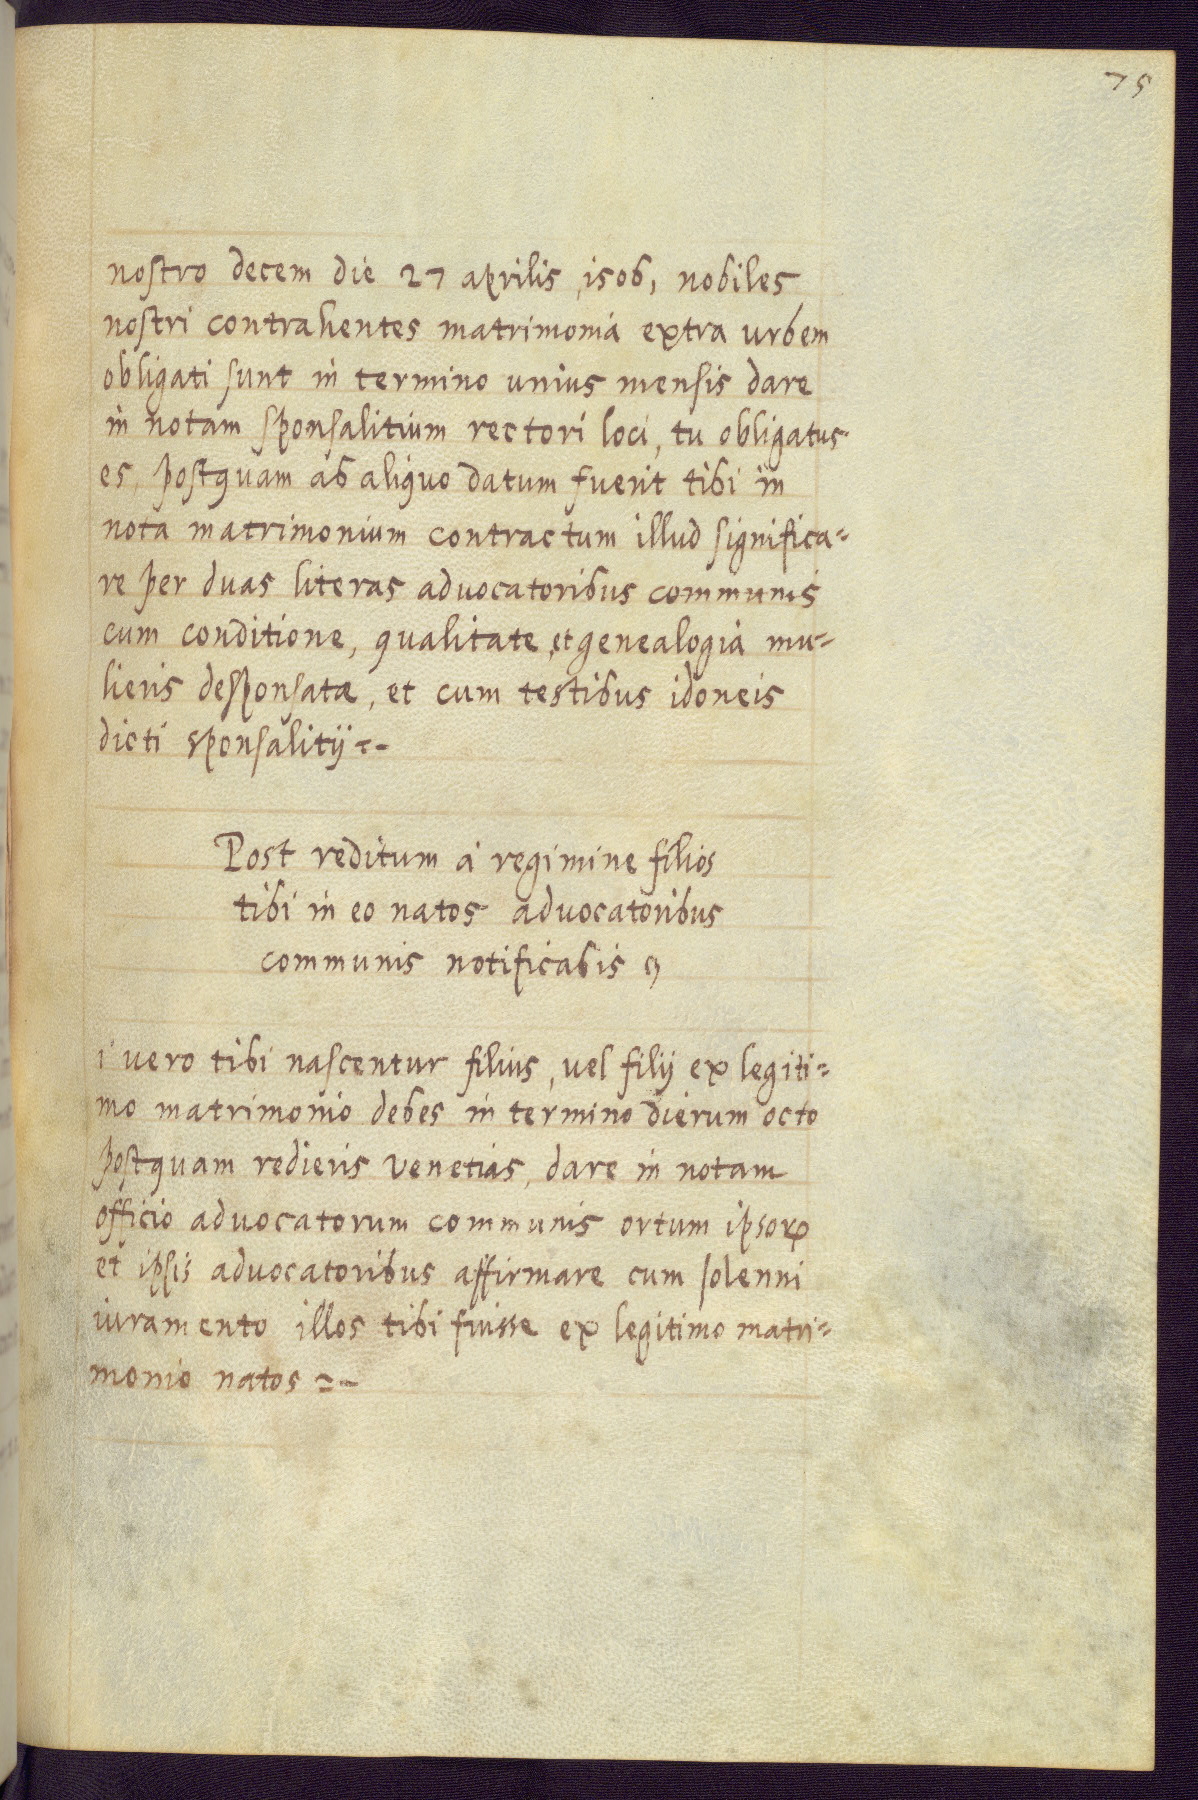 75
nostro decem die 27 aprilis, 1506, nobiles
nostri contrahentes matrimonia extra urbem
obligati sunt in termino unius mensis dare
in notam sponsalitium rectori loci, tu obligatus
es, postquam ab aliquo datum fuerit tibi in
nota matrimonium contractum illud significa=
re per duas literas advocatoribus communis
cum conditione, qualitate, et genealogia mu=
lieris desponsatæ, et cum testibus idoneis
dicti sponsalitij
Post reditum à regimine filios
tibi in eo natos advocatoribus
communis notificabis
i vero tibi nascentur filius, vel filij ex legiti=
mo matrimonio debes in termino dierum octo
postquam redieris Venetias, dare in notam
officio advocatorum communis ortum ipsoꝝ
et ipsis advocatoribus affirmare cum solenni
iuramento illos tibi fuisse ex legitimo matri=
monio natos